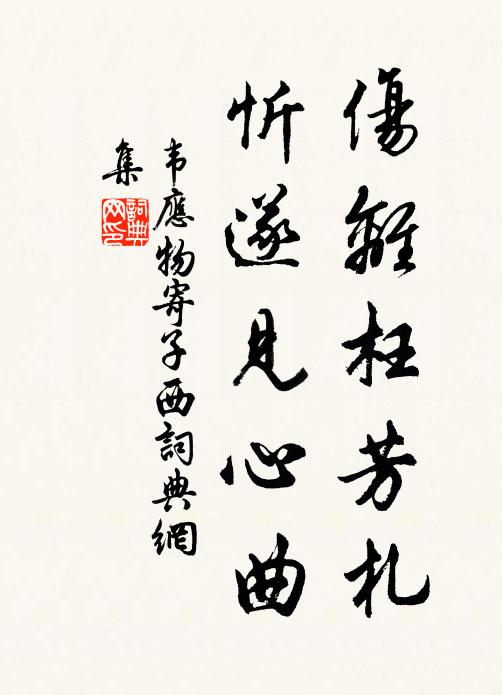 傷離枉芳札
忻遂見心曲
韦應物寄子西詞典網
集
詞典
网印